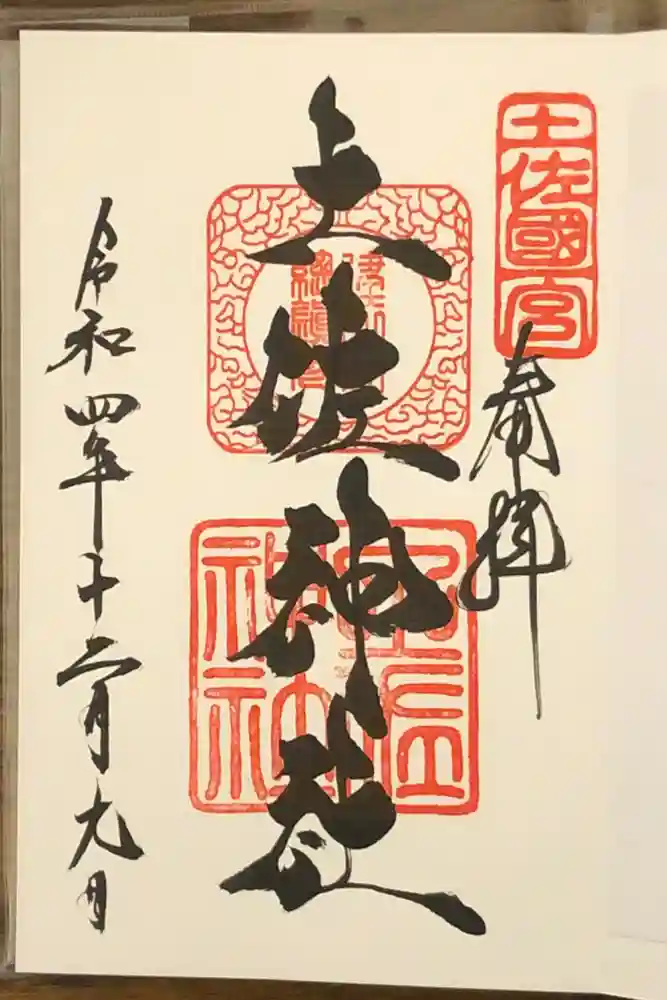 土佐國一宮
奉拝
土佐神社
土佐
神社
令和四年十二月九日